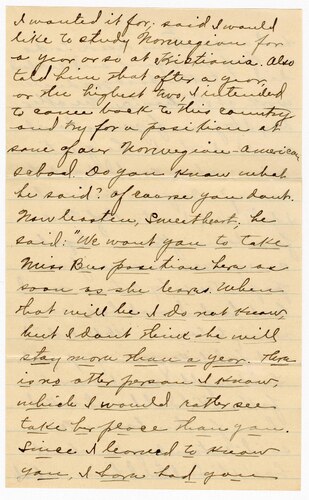 I wanted it for; said I would
like to study Norwegian for
a year or so at Kristiania. Also
told him that after a year
or the highest two, I intended
to come back to this country
and try for a position at
some of our Norwegian-American
school. Do you know what
he said? of course you dont.
Now leasten, Sweetheart, he
said: "We want you to take
Miss Bus position here as
soon as she leavs. When
that will be I do not know,
but I dont think she will
stay more than a year. There
is no other person I know,
which I would rather see
take her place than you.
Since I learned to know
you, I have had you